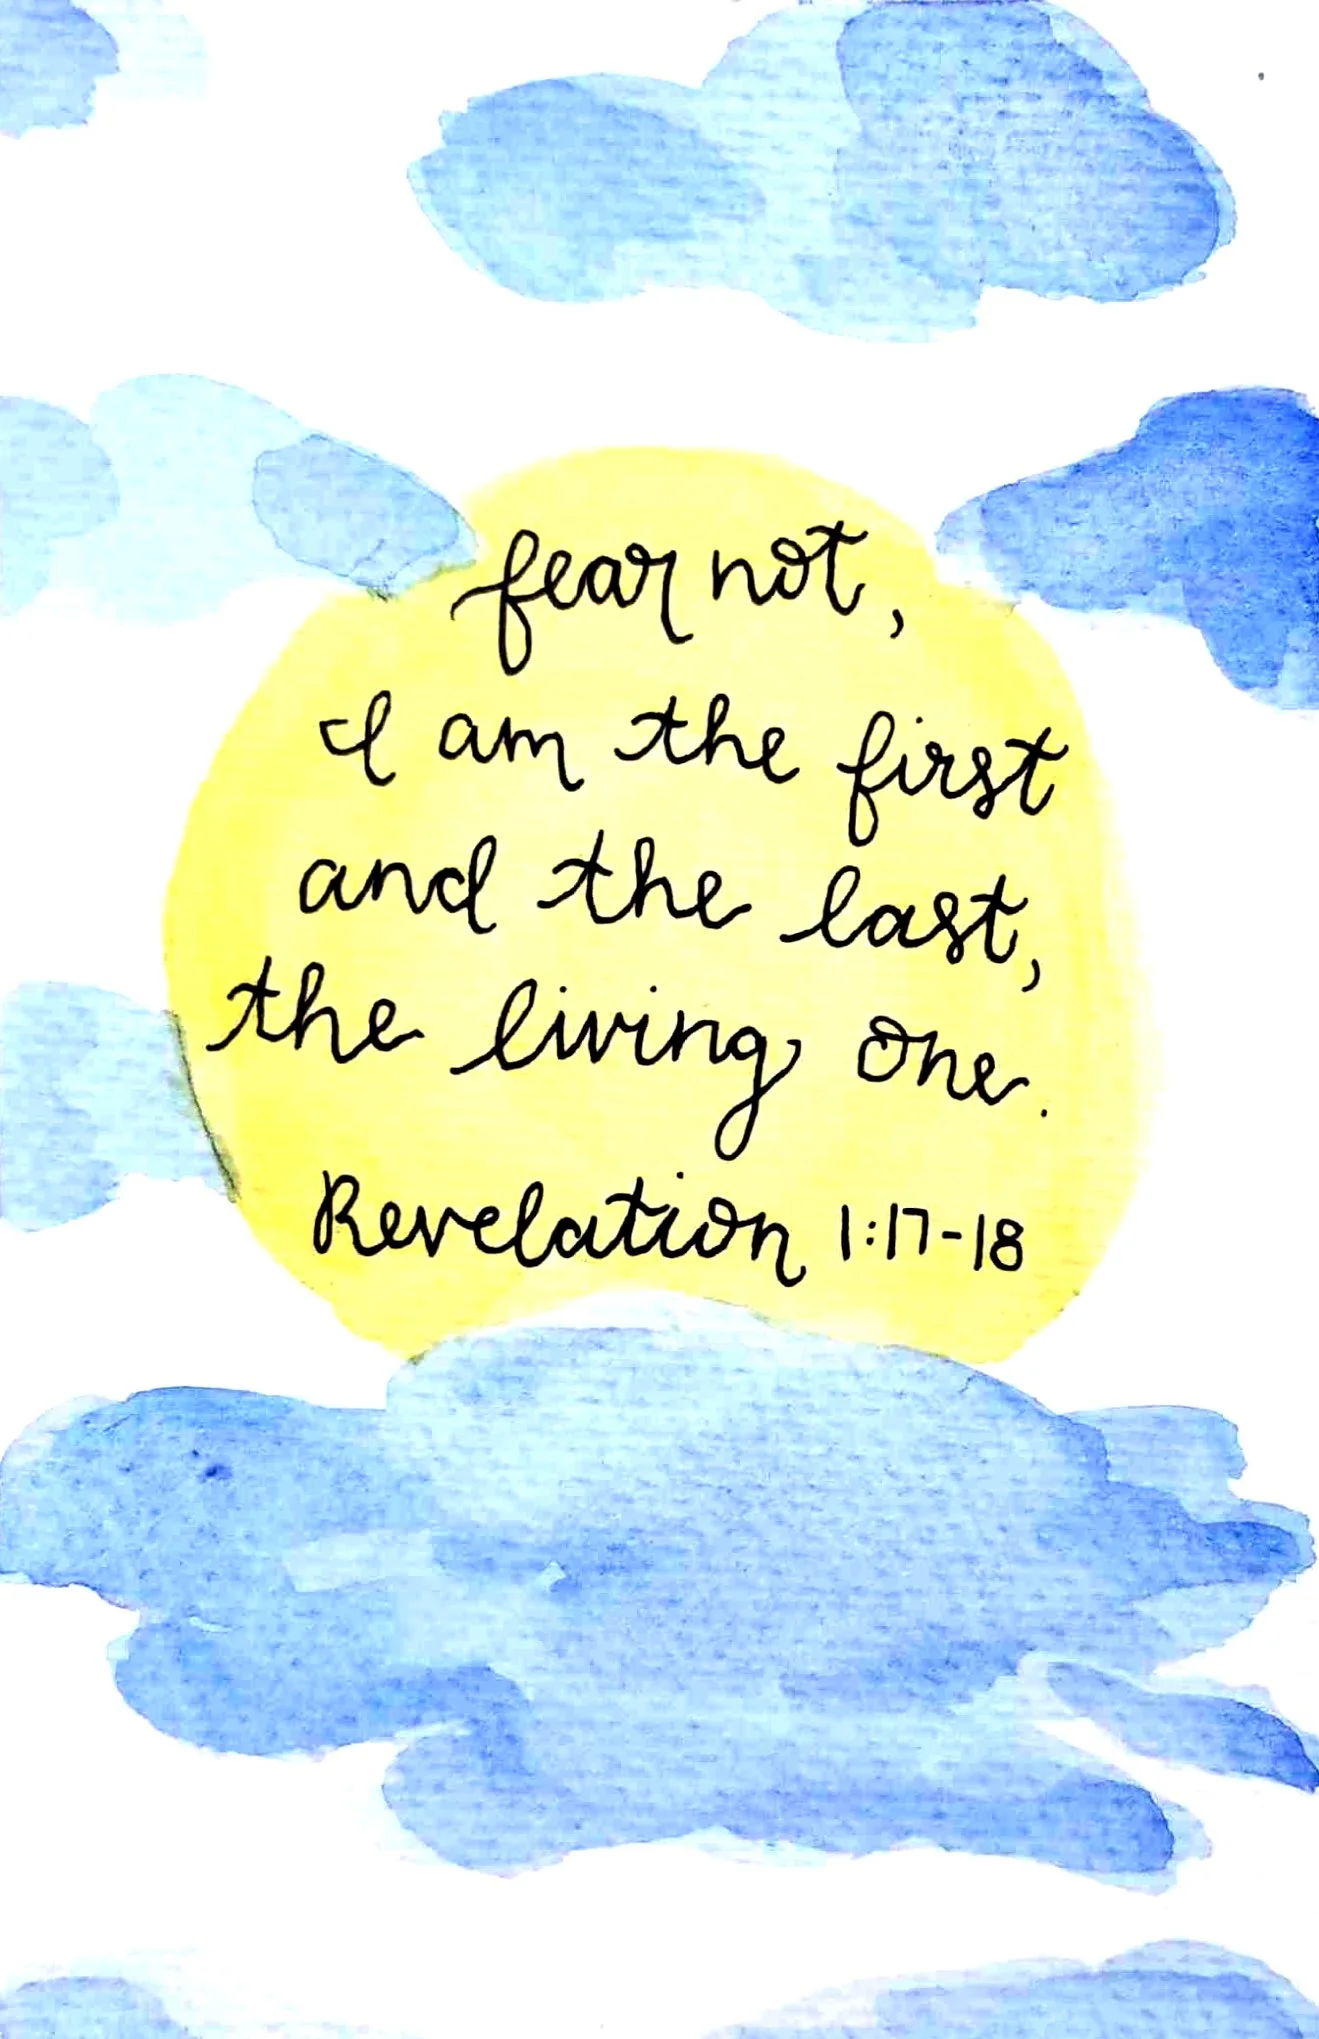 fear not,
I am the first
and the last,
the living one.
Revelation 1:17-18